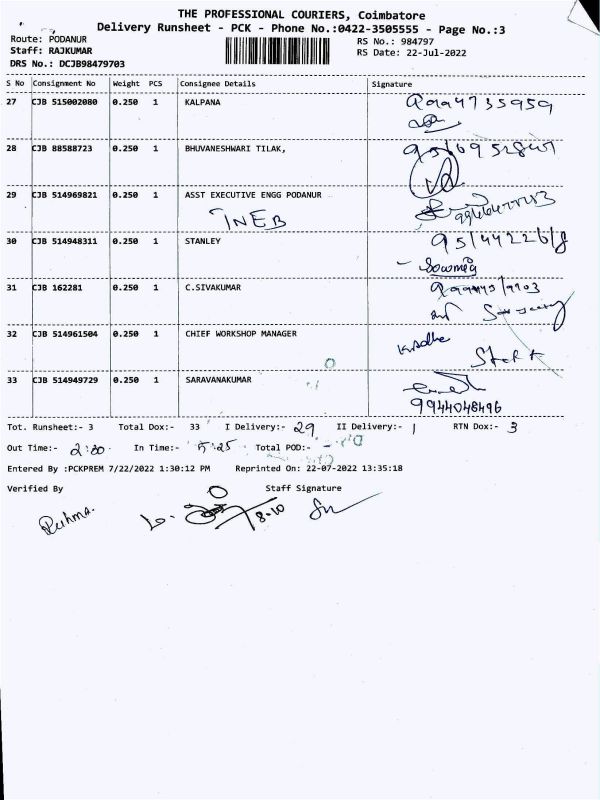 THE PROFESSIONAL COURIERS, Coimbatore
Delivery Runsheet - PCK - Phone No.:0422-3505555 - Page No.:3
Route: PODANUR RS No.: 984797
Staff: RAJKUMAR RS Date: 22-Jul-2022
DRS No.: DCJB98479703
S No Consignment No Weight PCS Consignee Details Signature
27 CJB 515002080 0.250 1 KALPANA
28 CJB 88588723 0.250 1 BHUVANESHWARI TILAK,
29 CJB 514969821 0.250 1 ASST EXECUTIVE ENGG PODANUR
TNEB
30 CJB 514948311 0.250 1 STANLEY
31 CJB 162281 0.250 1 C.SIVAKUMAR
32 CJB 514961504 0.250 1 CHIEF WORKSHOP MANAGER
33 CJB 514949729 0.250 1 SARAVANAKUMAR
9944048496
Tot. Runsheet:- 3 Total Dox:- 33 I Delivery:- 29 II Delivery:- 1 RTN Dox:- 3
Out Time:- 2:00 In Time:- 5:25 Total POD:-
Entered By :PCKPREM 7/22/2022 1:30:12 PM Reprinted On: 22-07-2022 13:35:18
Verified By Staff Signature
8-10